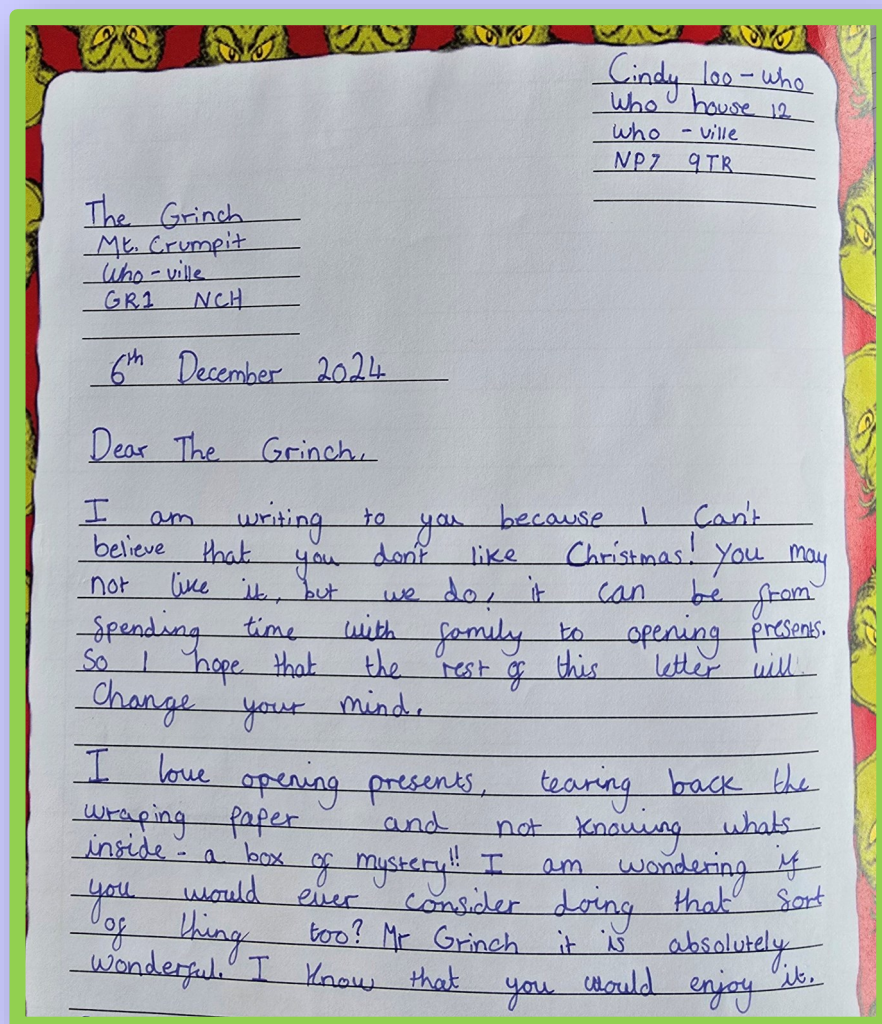 Cindy loo - who
Who house 12
who - ville
NP7 9TR
The Grinch
Mt. Crumpit
Who - ville
GR1 NCH
6th December 2024
Dear The Grinch,
I am writing to you because I Can't
believe that you don't like Christmas! You may
not like it, but we do, it can be from
spending time with family to opening presents.
So I hope that the rest of this letter will
Change your mind.
I love opening presents, tearing back the
wraping paper and not knowing whats
inside - a box of mystery!! I am wondering if
you would ever consider doing that sort
of thing too? Mr Grinch it is absolutely
wonderful. I know that you would enjoy it.